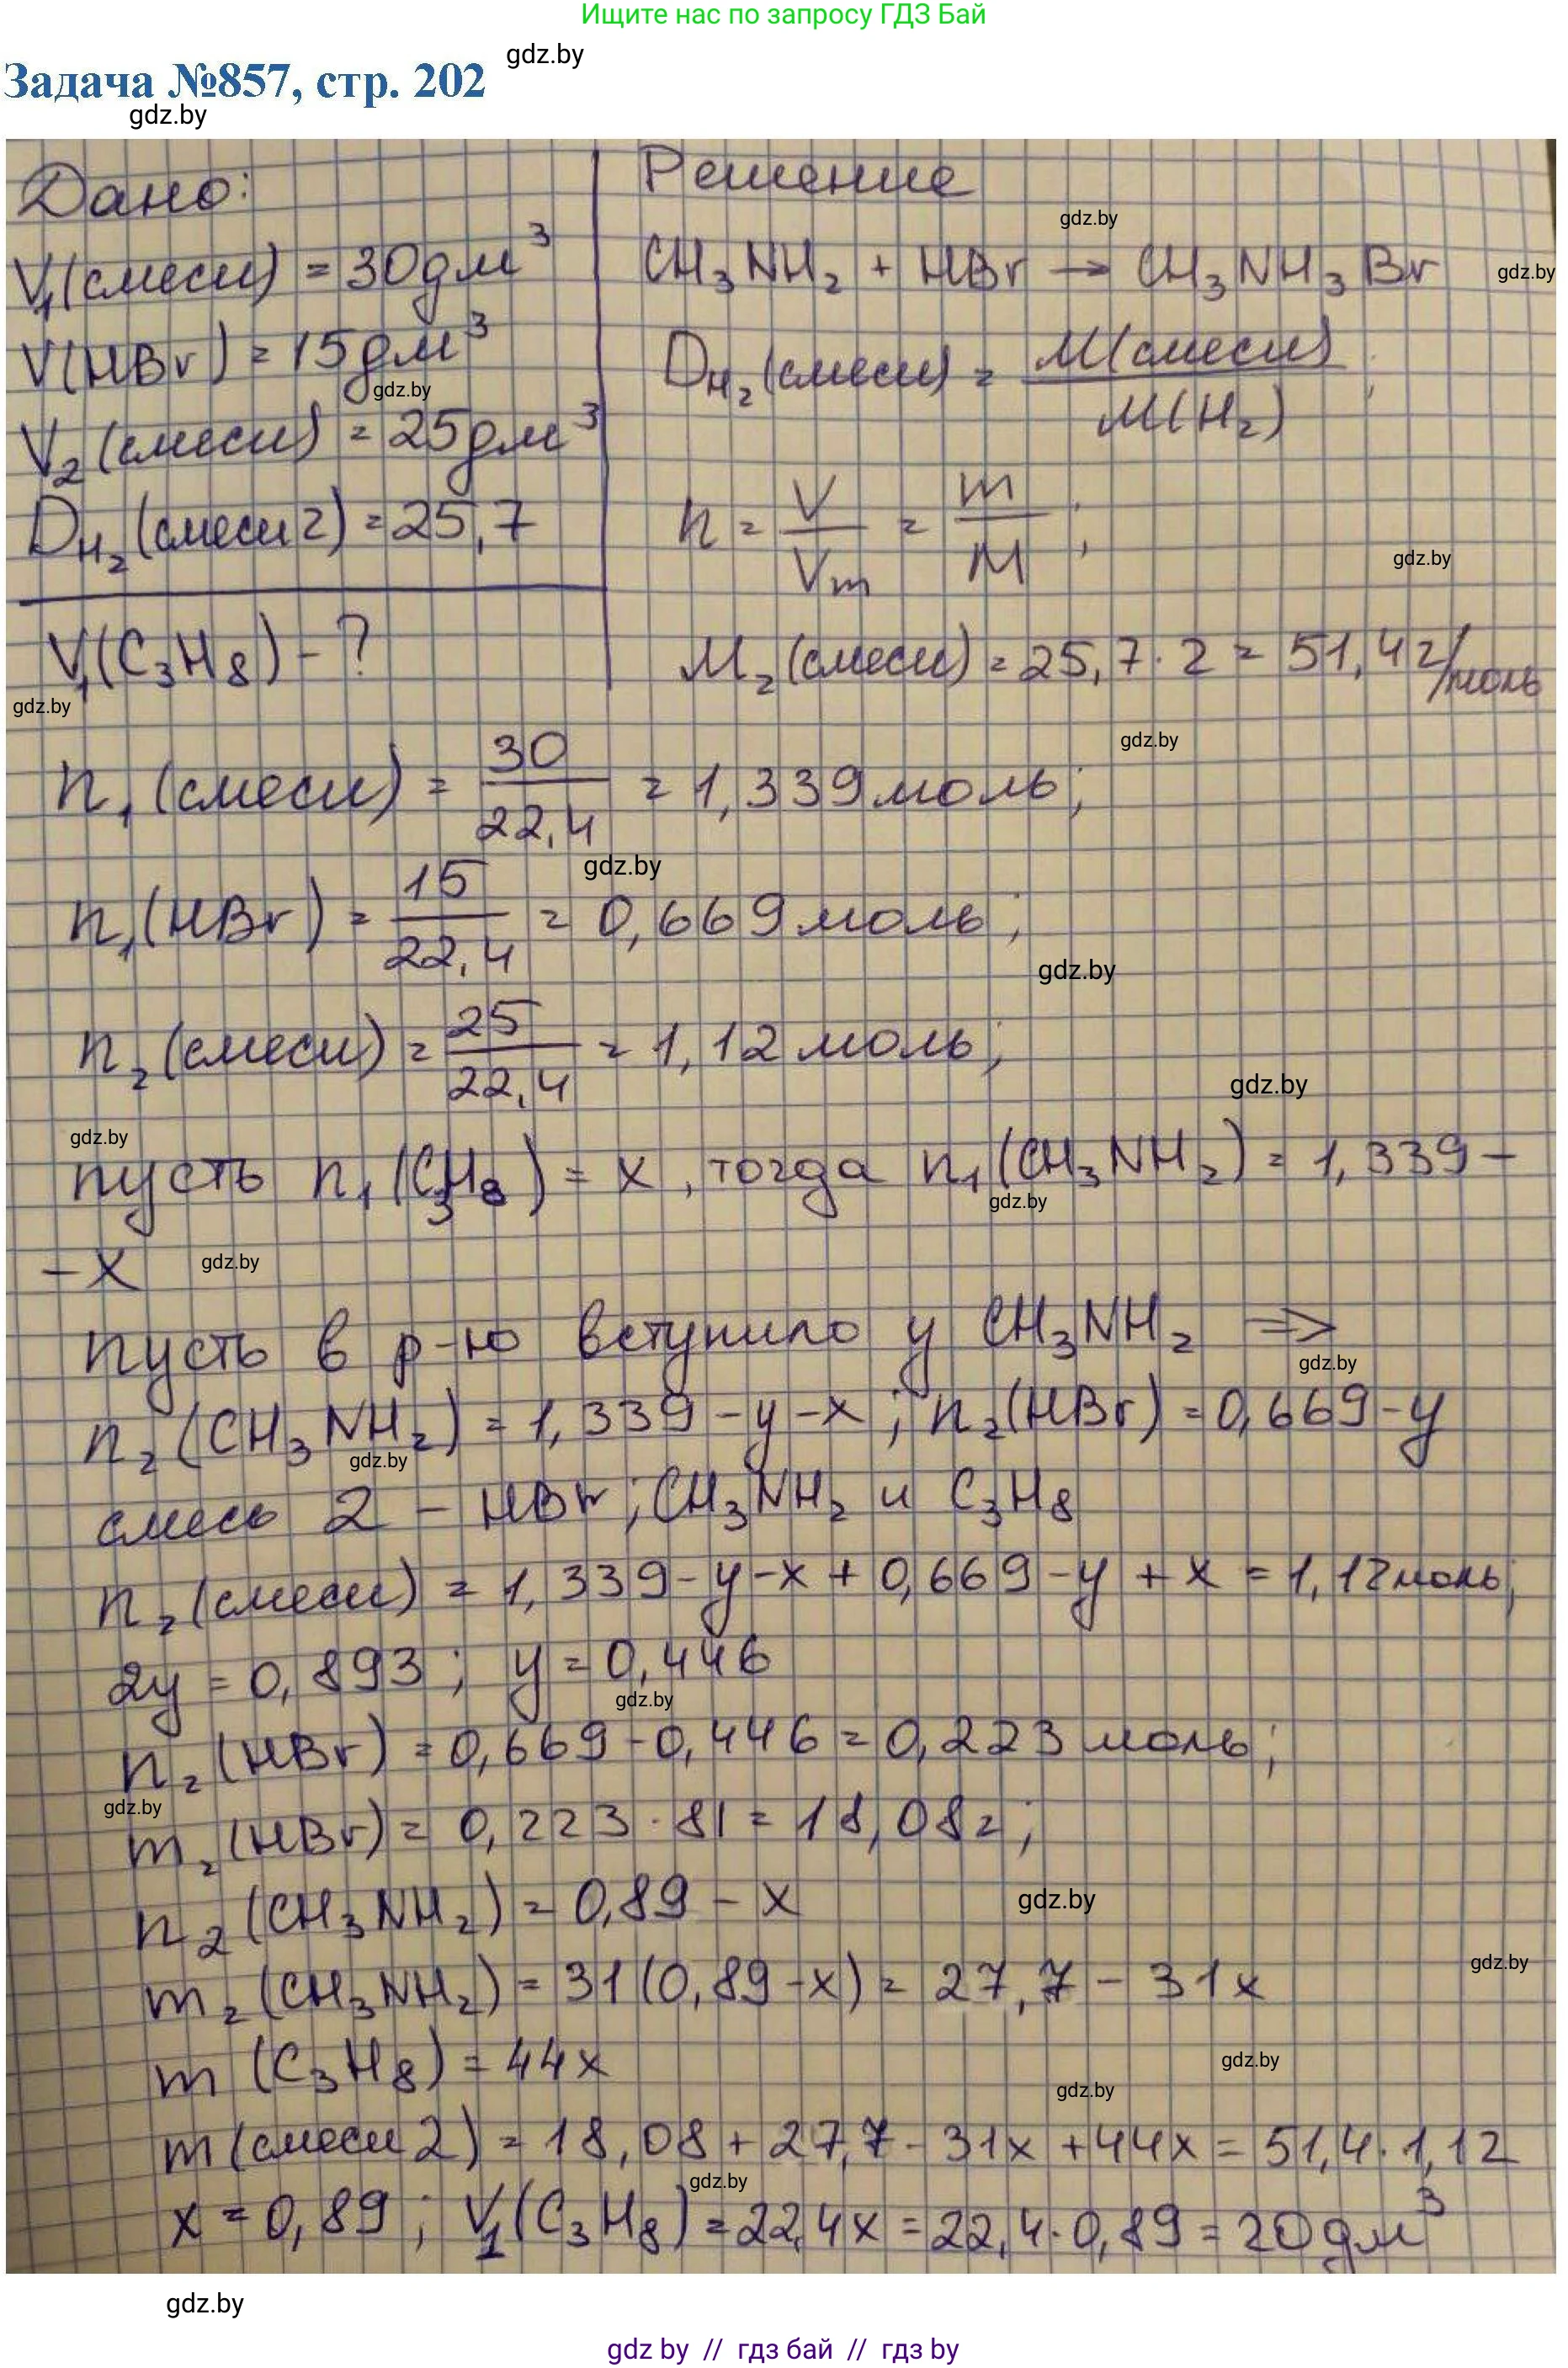 Ищите нас по запросу ГДЗ Бай
gdz.by
Задача №857, стр. 202
gdz.by
Дано:
V₁(смеси) = 30 дм³
V(HBr) = 15 дм³
gdz.by
V₂(смеси) = 25 дм³
D_H₂(смеси 2) = 25,7
V₁(C₃H₈) - ?
gdz.by
Решение
gdz.by
CH₃NH₂ + HBr → CH₃NH₃Br
gdz.by
D_H₂(смеси) = M(смеси) / M(H₂);
n = V / Vm = m / M;
gdz.by
M₂(смеси) = 25,7 · 2 = 51,4 г/моль
gdz.by
n₁(смеси) = 30 / 22,4 = 1,339 моль;
gdz.by
n₁(HBr) = 15 / 22,4 = 0,669 моль;
gdz.by
n₂(смеси) = 25 / 22,4 = 1,12 моль;
gdz.by
gdz.by
пусть n₁(C₃H₈) = x, тогда n₁(CH₃NH₂) = 1,339 -
gdz.by
- x
gdz.by
пусть в р-ю вступило y CH₃NH₂ ⇒
gdz.by
n₂(CH₃NH₂) = 1,339 - y - x; n₂(HBr) = 0,669 - y
gdz.by
смесь 2 - HBr; CH₃NH₂ и C₃H₈
n₂(смеси) = 1,339 - y - x + 0,669 - y + x = 1,12 моль;
2y = 0,893; y = 0,446
gdz.by
n₂(HBr) = 0,669 - 0,446 = 0,223 моль;
gdz.by
m₂(HBr) = 0,223 · 81 = 18,08 г;
n₂(CH₃NH₂) = 0,89 - x
gdz.by
gdz.by
m₂(CH₃NH₂) = 31(0,89 - x) = 27,7 - 31x
m(C₃H₈) = 44x
gdz.by
gdz.by
m(смеси 2) = 18,08 + 27,7 - 31x + 44x = 51,4 · 1,12
gdz.by
x = 0,89; V₁(C₃H₈) = 22,4x = 22,4 · 0,89 = 20 дм³
gdz.by
gdz by // гдз бай // гдз by